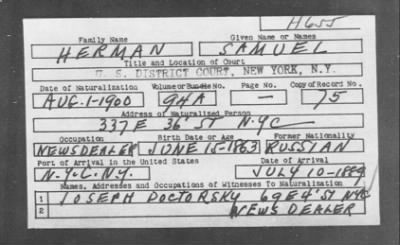 H655
Family Name Given Name or Names
HERMAN SAMUEL
Title and Location of Court
U. S. DISTRICT COURT, NEW YORK, N.Y.
Date of Naturalization Volume or Bundle No. Page No. Copy of Record No.
AUG.-1-1900 94A — 75
Address of Naturalized Person
337 E 36 ST NYC
Occupation Birth Date or Age Former Nationality
NEWSDEALER JUNE 15-1863 RUSSIAN
Port of Arrival in the United States Date of Arrival
N.Y.C. N.Y. JULY 10-1889
Names, Addresses and Occupations of Witnesses To Naturalization
1 JOSEPH DOCTORSKY 69 E 4' ST NYC
2 NEWS DEALER